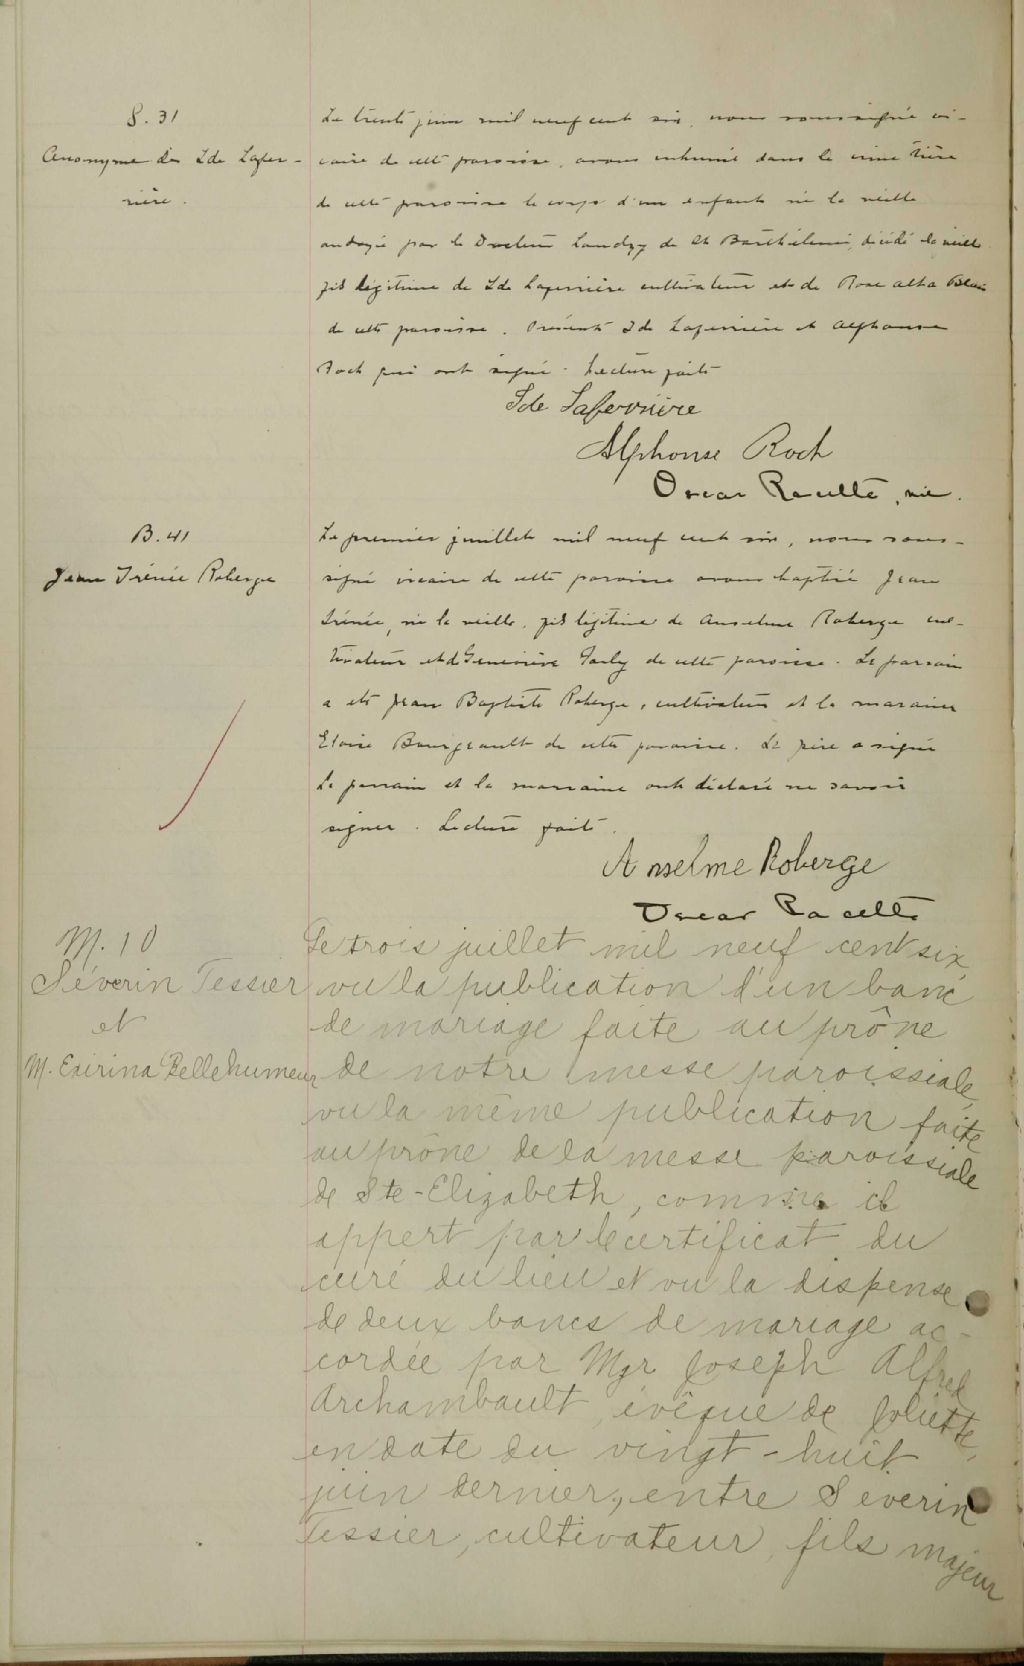 S. 31
Anonyme de Ide Lafer-
rière.
Le trente juin mil neuf cent six, nous soussigné vi-
caire de cette paroisse, avons inhumé dans le cimetière
de cette paroisse le corps d'un enfant né la veille
ondoyé par le Docteur Landry de St Barthélemi, décédé la veille
fils légitime de Ide Laferrière cultivateur et de Rose alba Blais
de cette paroisse. Présents Ide Laferrière et Alphonse
Roch qui ont signé. Lecture faite
Ide Laferrière
Alphonse Roch
Oscar Racette, vic.
B. 41
Jean Irénée Roberge
Le premier juillet mil neuf cent six, nous sous-
signé vicaire de cette paroisse avons baptisé Jean
Irénée, né la veille, fils légitime de Anselme Roberge cul-
tivateur et d Geneviève Farly de cette paroisse. Le parrain
a été Jean Baptiste Roberge, cultivateur et la marraine
Eloise Bourgeault de cette paroisse. Le père a signé
Le parrain et la marraine ont déclaré ne savoir
signer. Lecture faite.
Anselme Roberge
Oscar Racette
M. 10
Séverin Tessier
et
M. Exirina Bellehumeur
Le trois juillet mil neuf cent six,
vu la publication d'un banc
de mariage faite au prône
de notre messe paroissiale,
vu la même publication faite
au prône de la messe paroissiale
de Ste-Elizabeth, comme il
appert par le certificat du
curé du lieu et vu la dispense
de deux bancs de mariage ac-
cordée par Mgr Joseph Alfred
Archambault, évêque de Joliette,
en date du vingt-huit
juin dernier, entre Séverin
Tessier, cultivateur, fils majeur